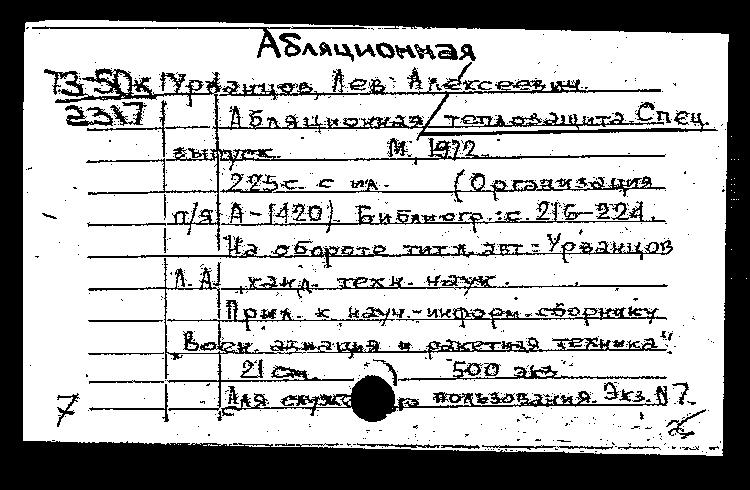 Абляционная
73-50к Урванцов, Лев Алексеевич.
2317 Абляционная теплозащита. Спец.
выпуск. М., 1972.
225 с. с ил. (Организация
п/я А-1420). Библиогр.: с. 216-224.
На обороте титл. авт.: Урванцов
Л. А., канд. техн. наук.
Прил. к науч.-информ. сборнику
„Воен. авиация и ракетная техника"
21 см. 500 экз.
Для пользования. Экз. N 7.
7